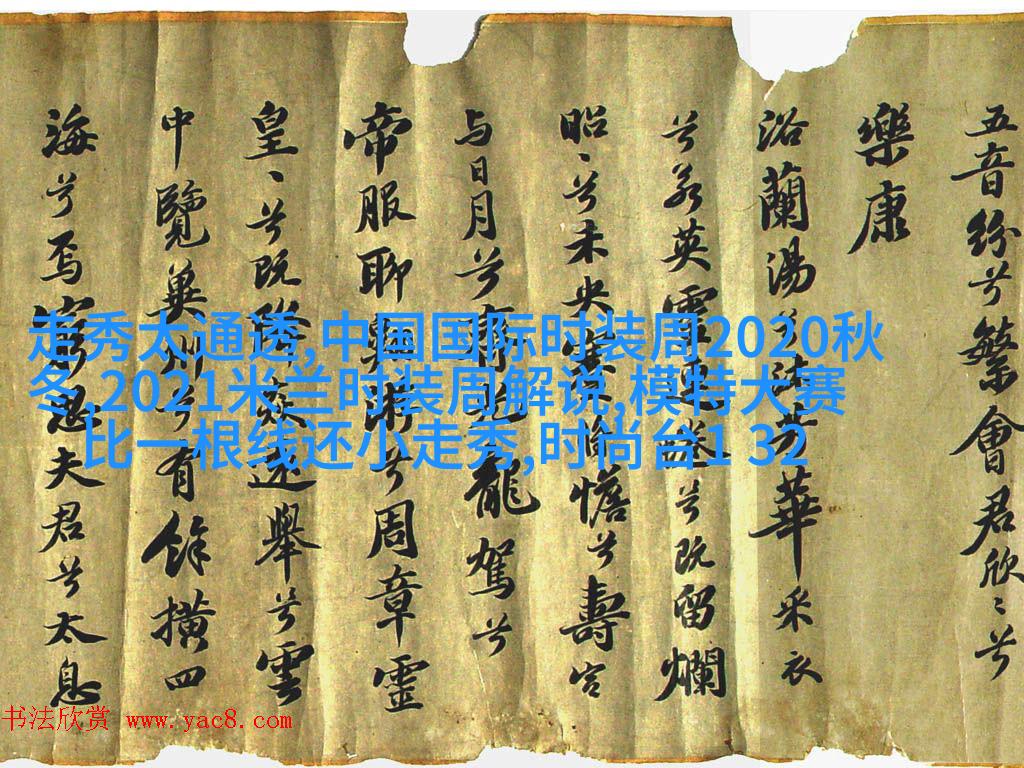 五音紛兮繁會君欣々兮
樂康
浴蘭湯兮沐芳華采衣
兮若英靈連蜷兮既留爛
昭々兮未央蹇將憺兮壽宮
与日月兮齊光龍駕兮
帝服聊翱翔兮周章靈
皇々兮既降猋遠舉兮雲
中覽冀州兮有餘橫四
海兮焉窮思夫君兮太息
走秀太通透,中国国际时装周2020秋
冬,2021米兰时装周解说,模特大赛
比一根线还小走秀,时尚台1 32
书法欣赏 www.yac8.com